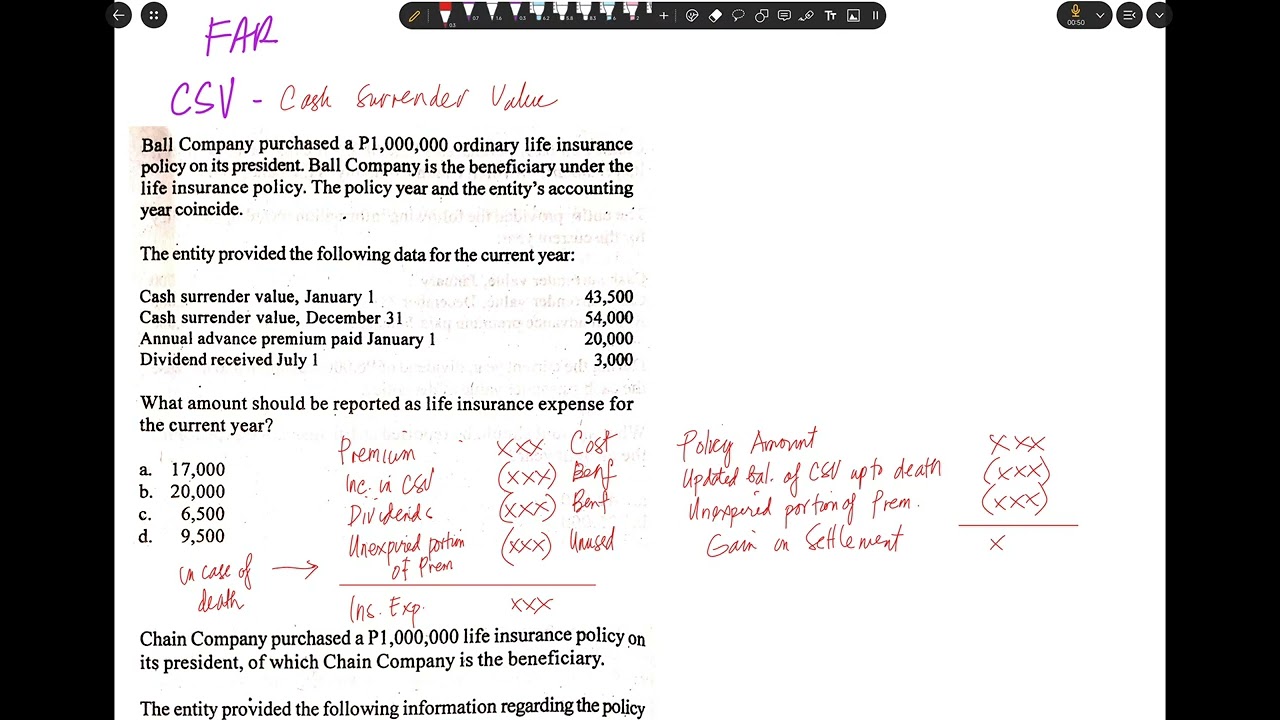 0.3 0.7 1.6 0.3 6.2 5.8 8.3 6 2
Tт
00:50
FAR
CSV - Cash Surrender Value
Ball Company purchased a P1,000,000 ordinary life insurance
policy on its president. Ball Company is the beneficiary under the
life insurance policy. The policy year and the entity's accounting
year coincide.
The entity provided the following data for the current year:
Cash surrender value, January 1 43,500
Cash surrender value, December 31 54,000
Annual advance premium paid January 1 20,000
Dividend received July 1 3,000
What amount should be reported as life insurance expense for
the current year?
a. 17,000
b. 20,000
c. 6,500
d. 9,500
Premium xxx Cost
Inc. in CSV (xxx) Benf
Dividends (xxx) Benf
Unexpired portion (xxx) Unused
of Prem
in case of
death
Ins. Exp. xxx
Policy Amount xxx
Updated bal. of CSV up to death (xxx)
Unexpired portion of Prem. (xxx)
Gain on Settlement x
Chain Company purchased a P1,000,000 life insurance policy on
its president, of which Chain Company is the beneficiary.
The entity provided the following information regarding the policy